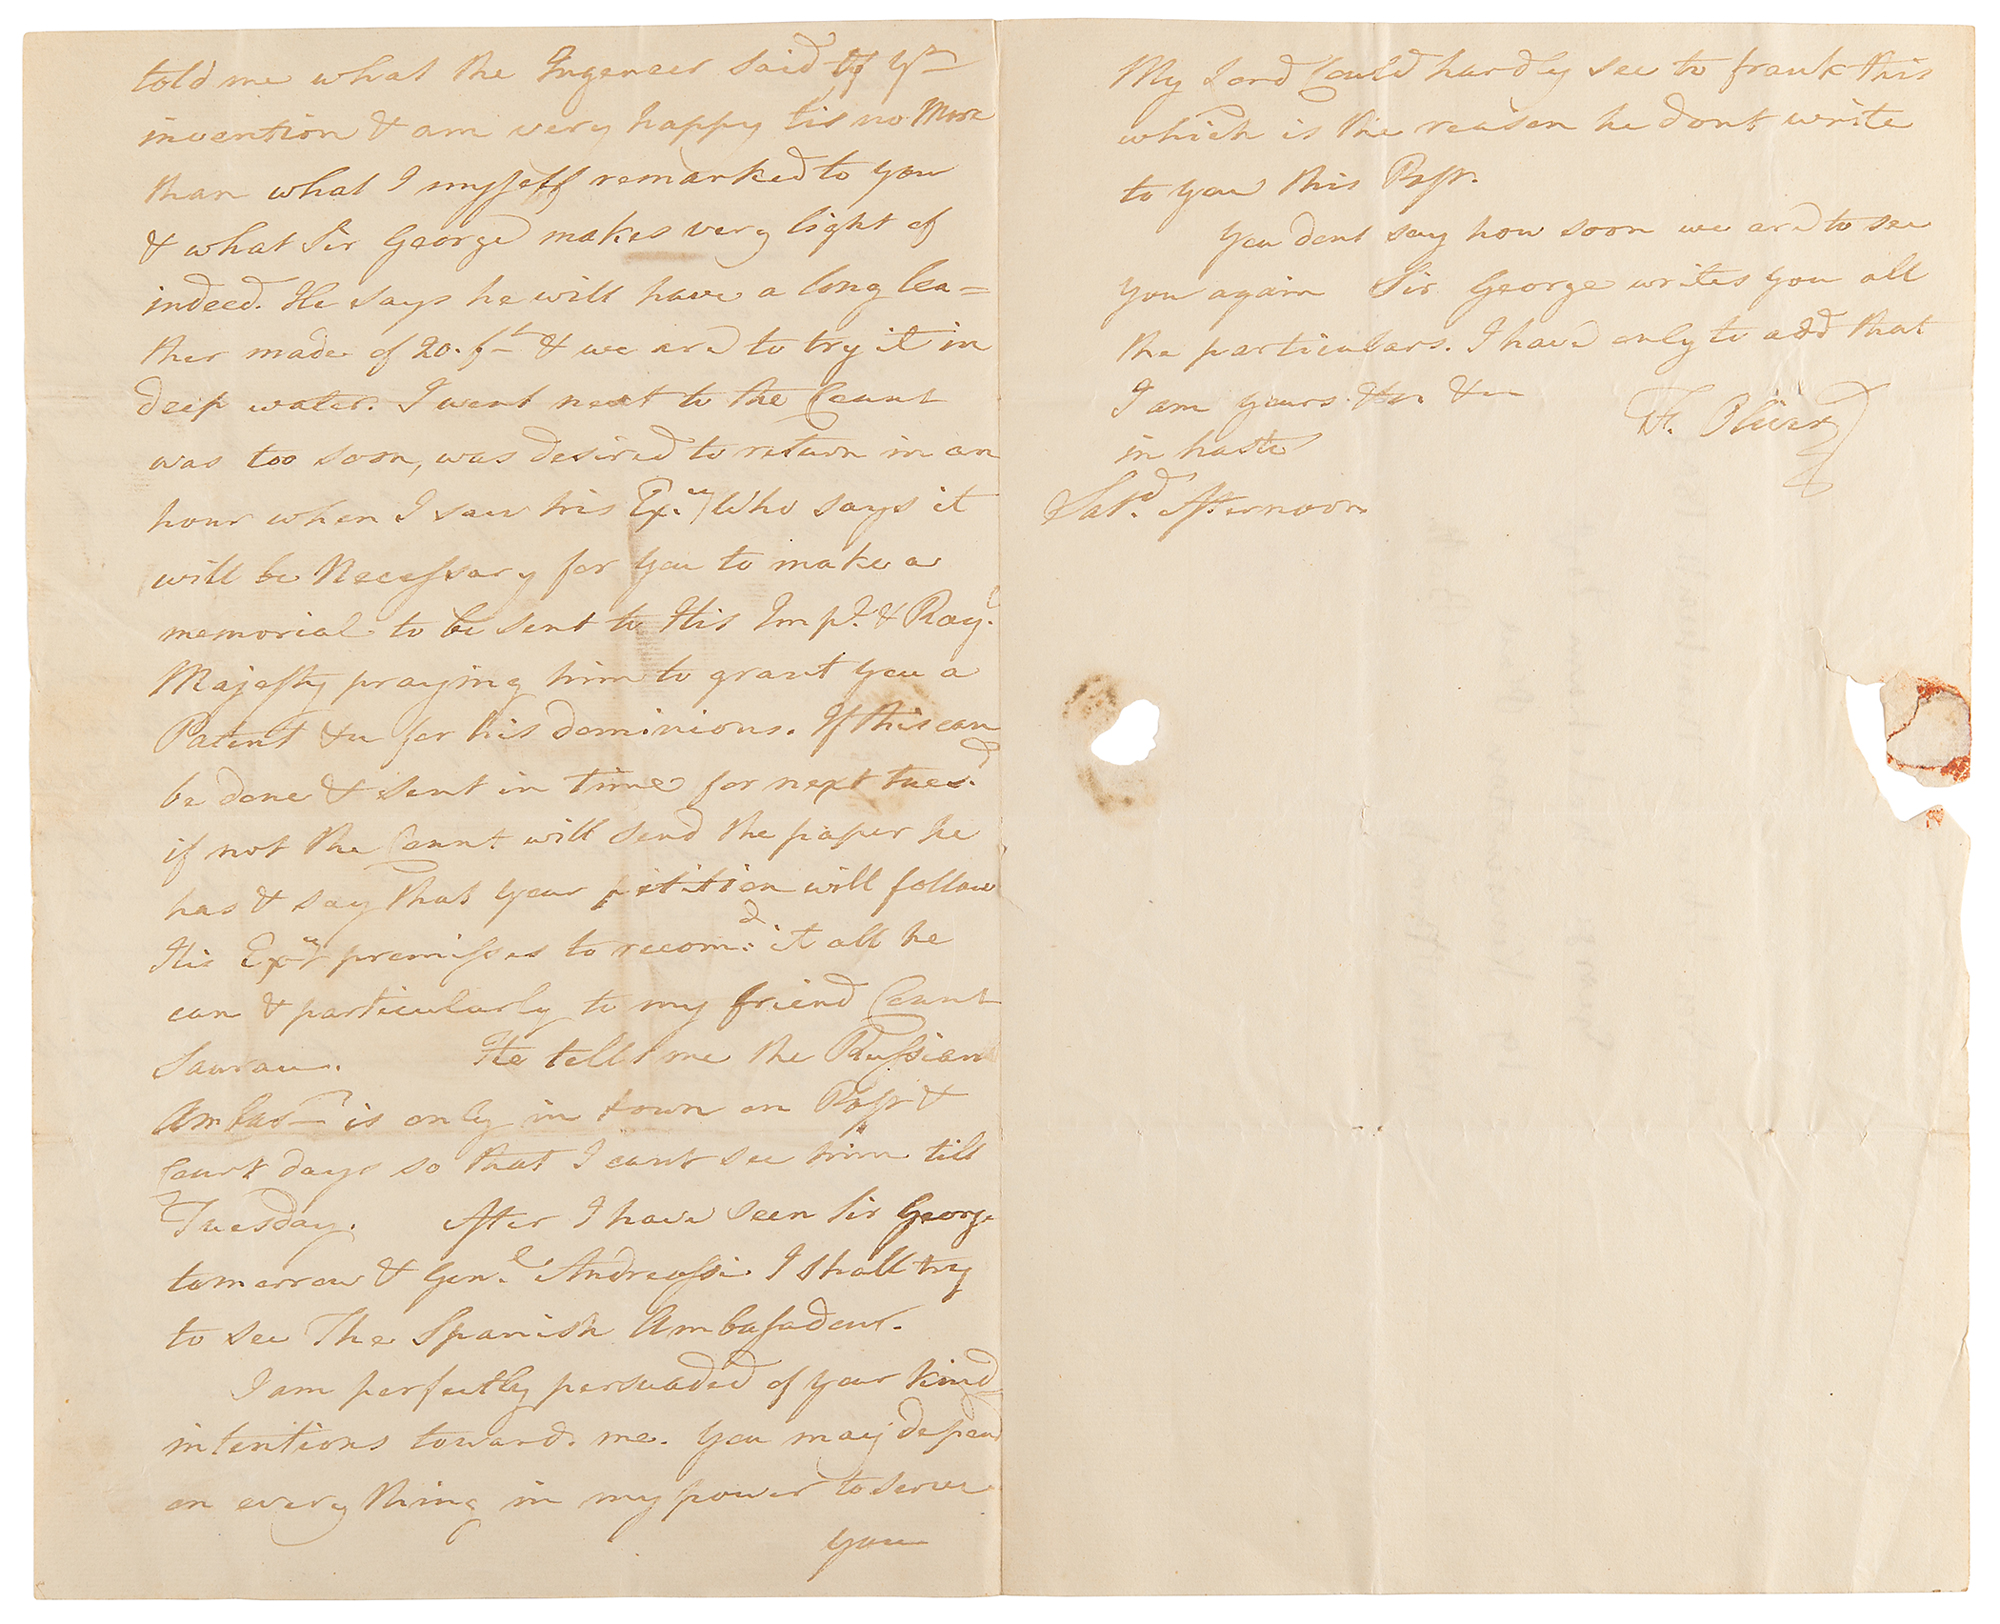 told me what the Ingeneer said of Yr
invention & am very happy tis no More
than what I myself remarked to you
& what Sir George makes very light of
indeed. He says he will have a long lea=
ther made of 20. ft & we are to try it in
deep water. I went next to the Count
was too soon, was desired to return in an
hour when I saw his Exy. Who says it
will be Necessary for you to make a
memorial to be sent to His Impl. & Royl.
Majesty praying him to grant you a
Patent &c for his dominions. If this can
be done & sent in time for next tuesd.
if not the Count will send the paper he
has & say that your petition will follow
His Exy promisses to recomd. it all he
can & particularly to my friend Count
Saurau. He tells me the Russian
Ambasr is only in town on Post &
Court days so that I cant see him till
Tuesday. After I have seen Sir George
tomorrow & Genl. Andreossi I shall try
to see The Spanish Ambasadour.
I am perfectly persuaded of your kind
intentions towards me. You may depend
on every thing in my power to serve
you
My Lord Could hardly see to frank this
which is the reason he dont write
to you this Post.
You dont say how soon we are to see
you again Sir George writes you all
the particulars. I have only to add that
I am yours &c. &c
in haste
F. Oliver
Satd. Afternoon